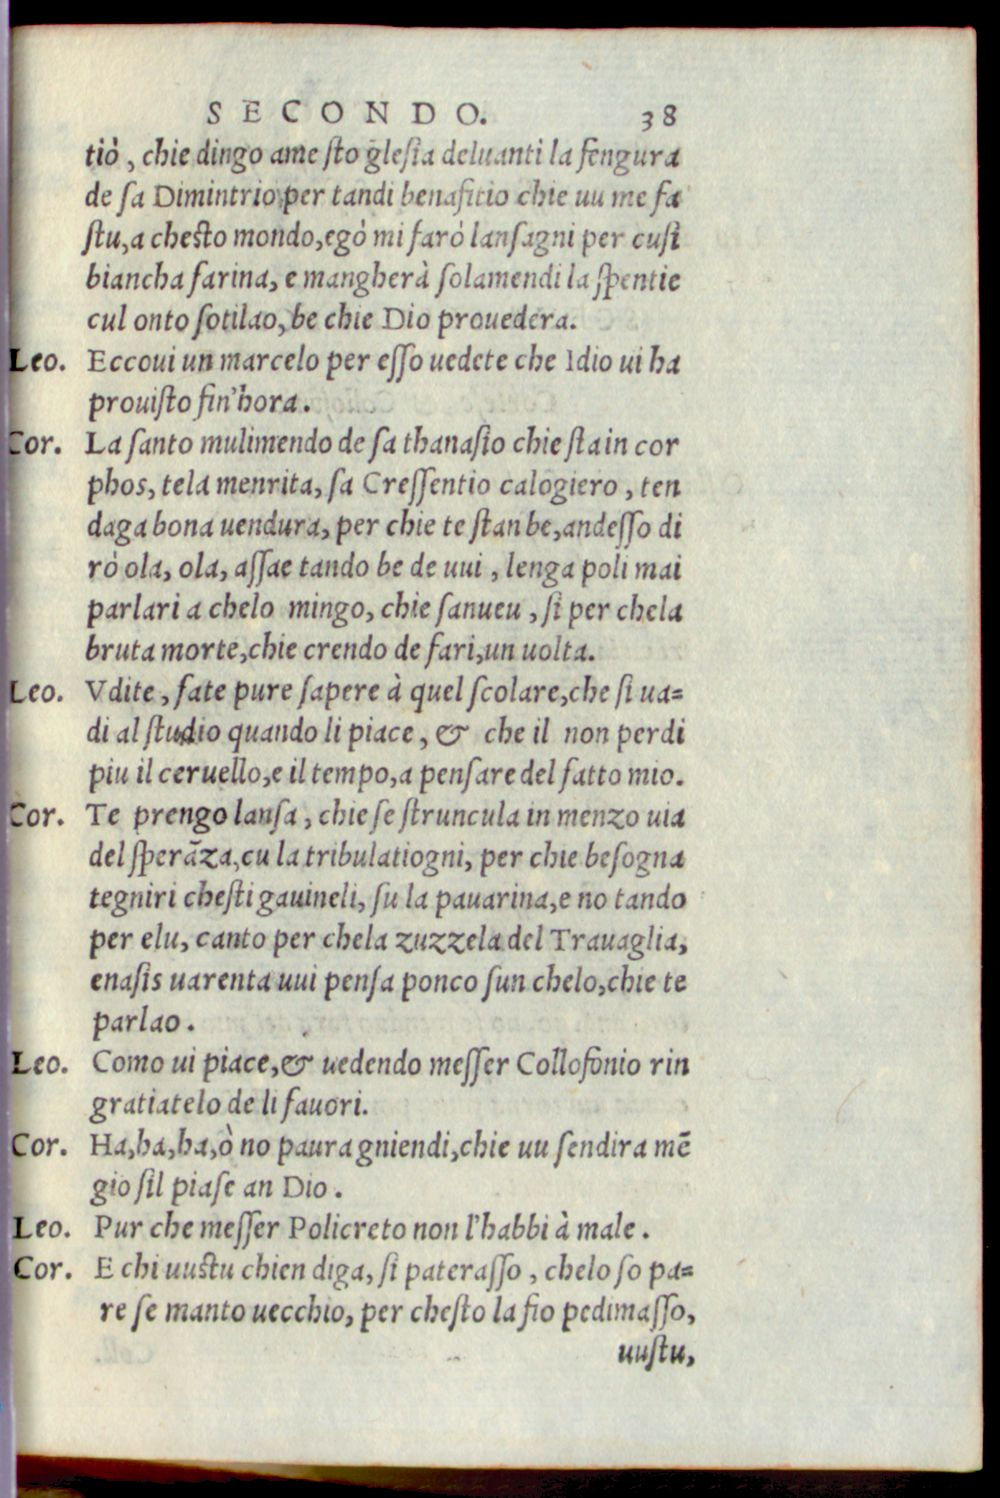 SECONDO. 38
tiò, chie dingo ame sto glesia deluanti la fengura
de sa Dimintrio per tandi benafitio chie uu me fa
stu, a chesto mondo, egò mi farò lansagni per cusi
biancha farina, e mangherà solamendi la spentie
cul onto sotilao, be chie Dio prouedera.
Leo. Eccoui un marcelo per esso uedete che Idio ui ha
prouisto fin'hora.
Cor. La santo mulimendo de sa thanasio chie sta in cor
phos, tela menrita, sa Cressentio calogiero, ten
daga bona uendura, per chie te stan be, andesso di
rò ola, ola, assae tando be de uui, lenga poli mai
parlari a chelo mingo, chie sanueu, si per chela
bruta morte, chie crendo de fari, un uolta.
Leo. Vdite, fate pure sapere à quel scolare, che si ua=
di al studio quando li piace, & che il non perdi
piu il ceruello, e il tempo, a pensare del fatto mio.
Cor. Te prengo lansa, chie se struncula in menzo uia
del sperãza, cu la tribulatiogni, per chie besogna
tegniri chesti gauineli, su la pauarina, e no tando
per elu, canto per chela zuzzela del Trauaglia,
enasis uarenta uui pensa ponco sun chelo, chie te
parlao.
Leo. Como ui piace, & uedendo messer Collofonio rin
gratiatelo de li fauori.
Cor. Ha, ha, ha, ò no paura gniendi, chie uu sendira mẽ
gio sil piase an Dio.
Leo. Pur che messer Policreto non l'habbi à male.
Cor. E chi uustu chien diga, si paterasso, chelo so pa=
re se manto uecchio, per chesto la fio pedimasso,
uustu,